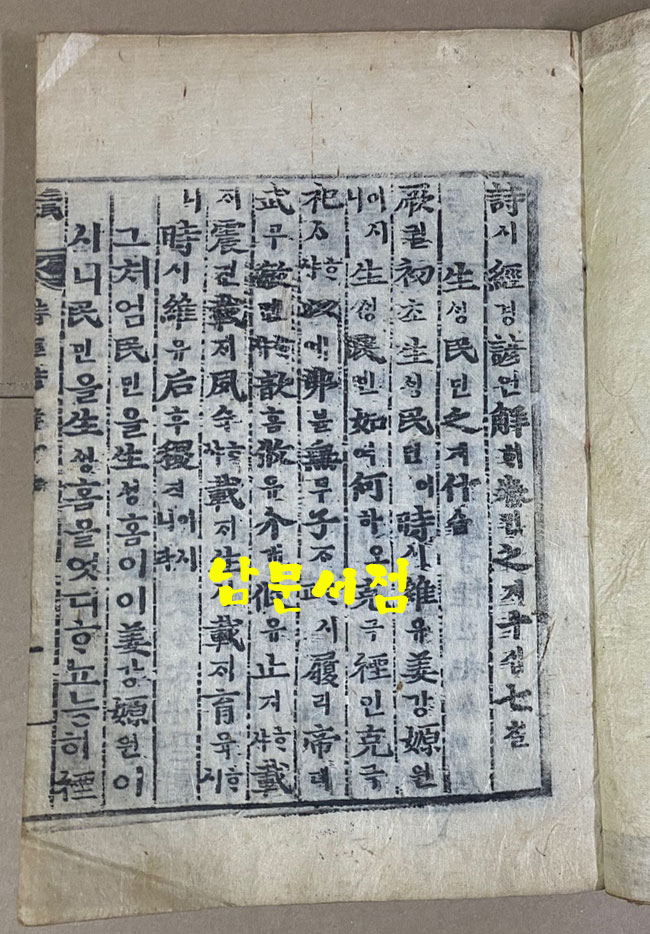 詩시經경諺언解ᄒᆡ卷권之지十십七칠
生ᄉᆡᆼ民민之지什습
厥궐初초生ᄉᆡᆼ民민이時시維유姜강嫄원
이시니生ᄉᆡᆼ民민如여何하오克극禋인克극
祀ᄉᆞᄒᆞ샤以이弗불無무子ᄌᆞ시履리帝뎨
武무敏민ᄒᆞ샤歆흠攸유介개攸유止지ᄒᆞ샤載
ᄌᆡ震진載ᄌᆡ夙슉ᄒᆞ샤載ᄌᆡ生載ᄌᆡ育육ᄒᆞ시
니時시維유后후稷직이시니라
그처엄民민을生ᄉᆡᆼ홈이이姜강嫄원이
시니民민을生ᄉᆡᆼ홈을엇디ᄒᆞ뇨능히禋
남문서점